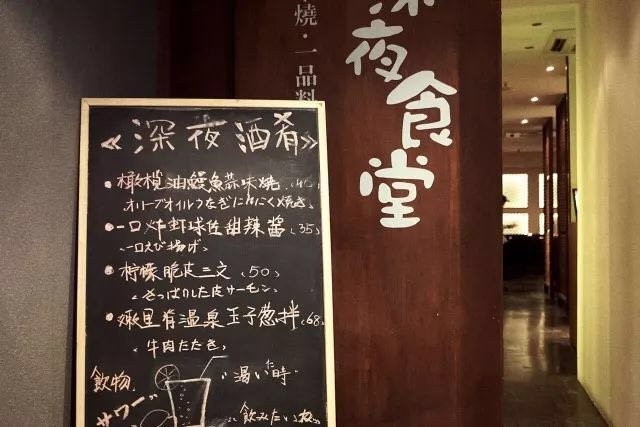 燒・一品料
深夜食堂
《深夜酒肴》
•橄欖油鰻魚蒜味燒
オリーブオイルうなぎにんにく焼き
•一口炸虾球佐甜辣醬（35）
一口えび揚げ
•柠檬脆皮三文（50）
さっぱりした皮サーモン
•嫩里肴温泉玉子葱拌（68）
牛肉たたき
飲物
渴い時
サワー
飲みたい